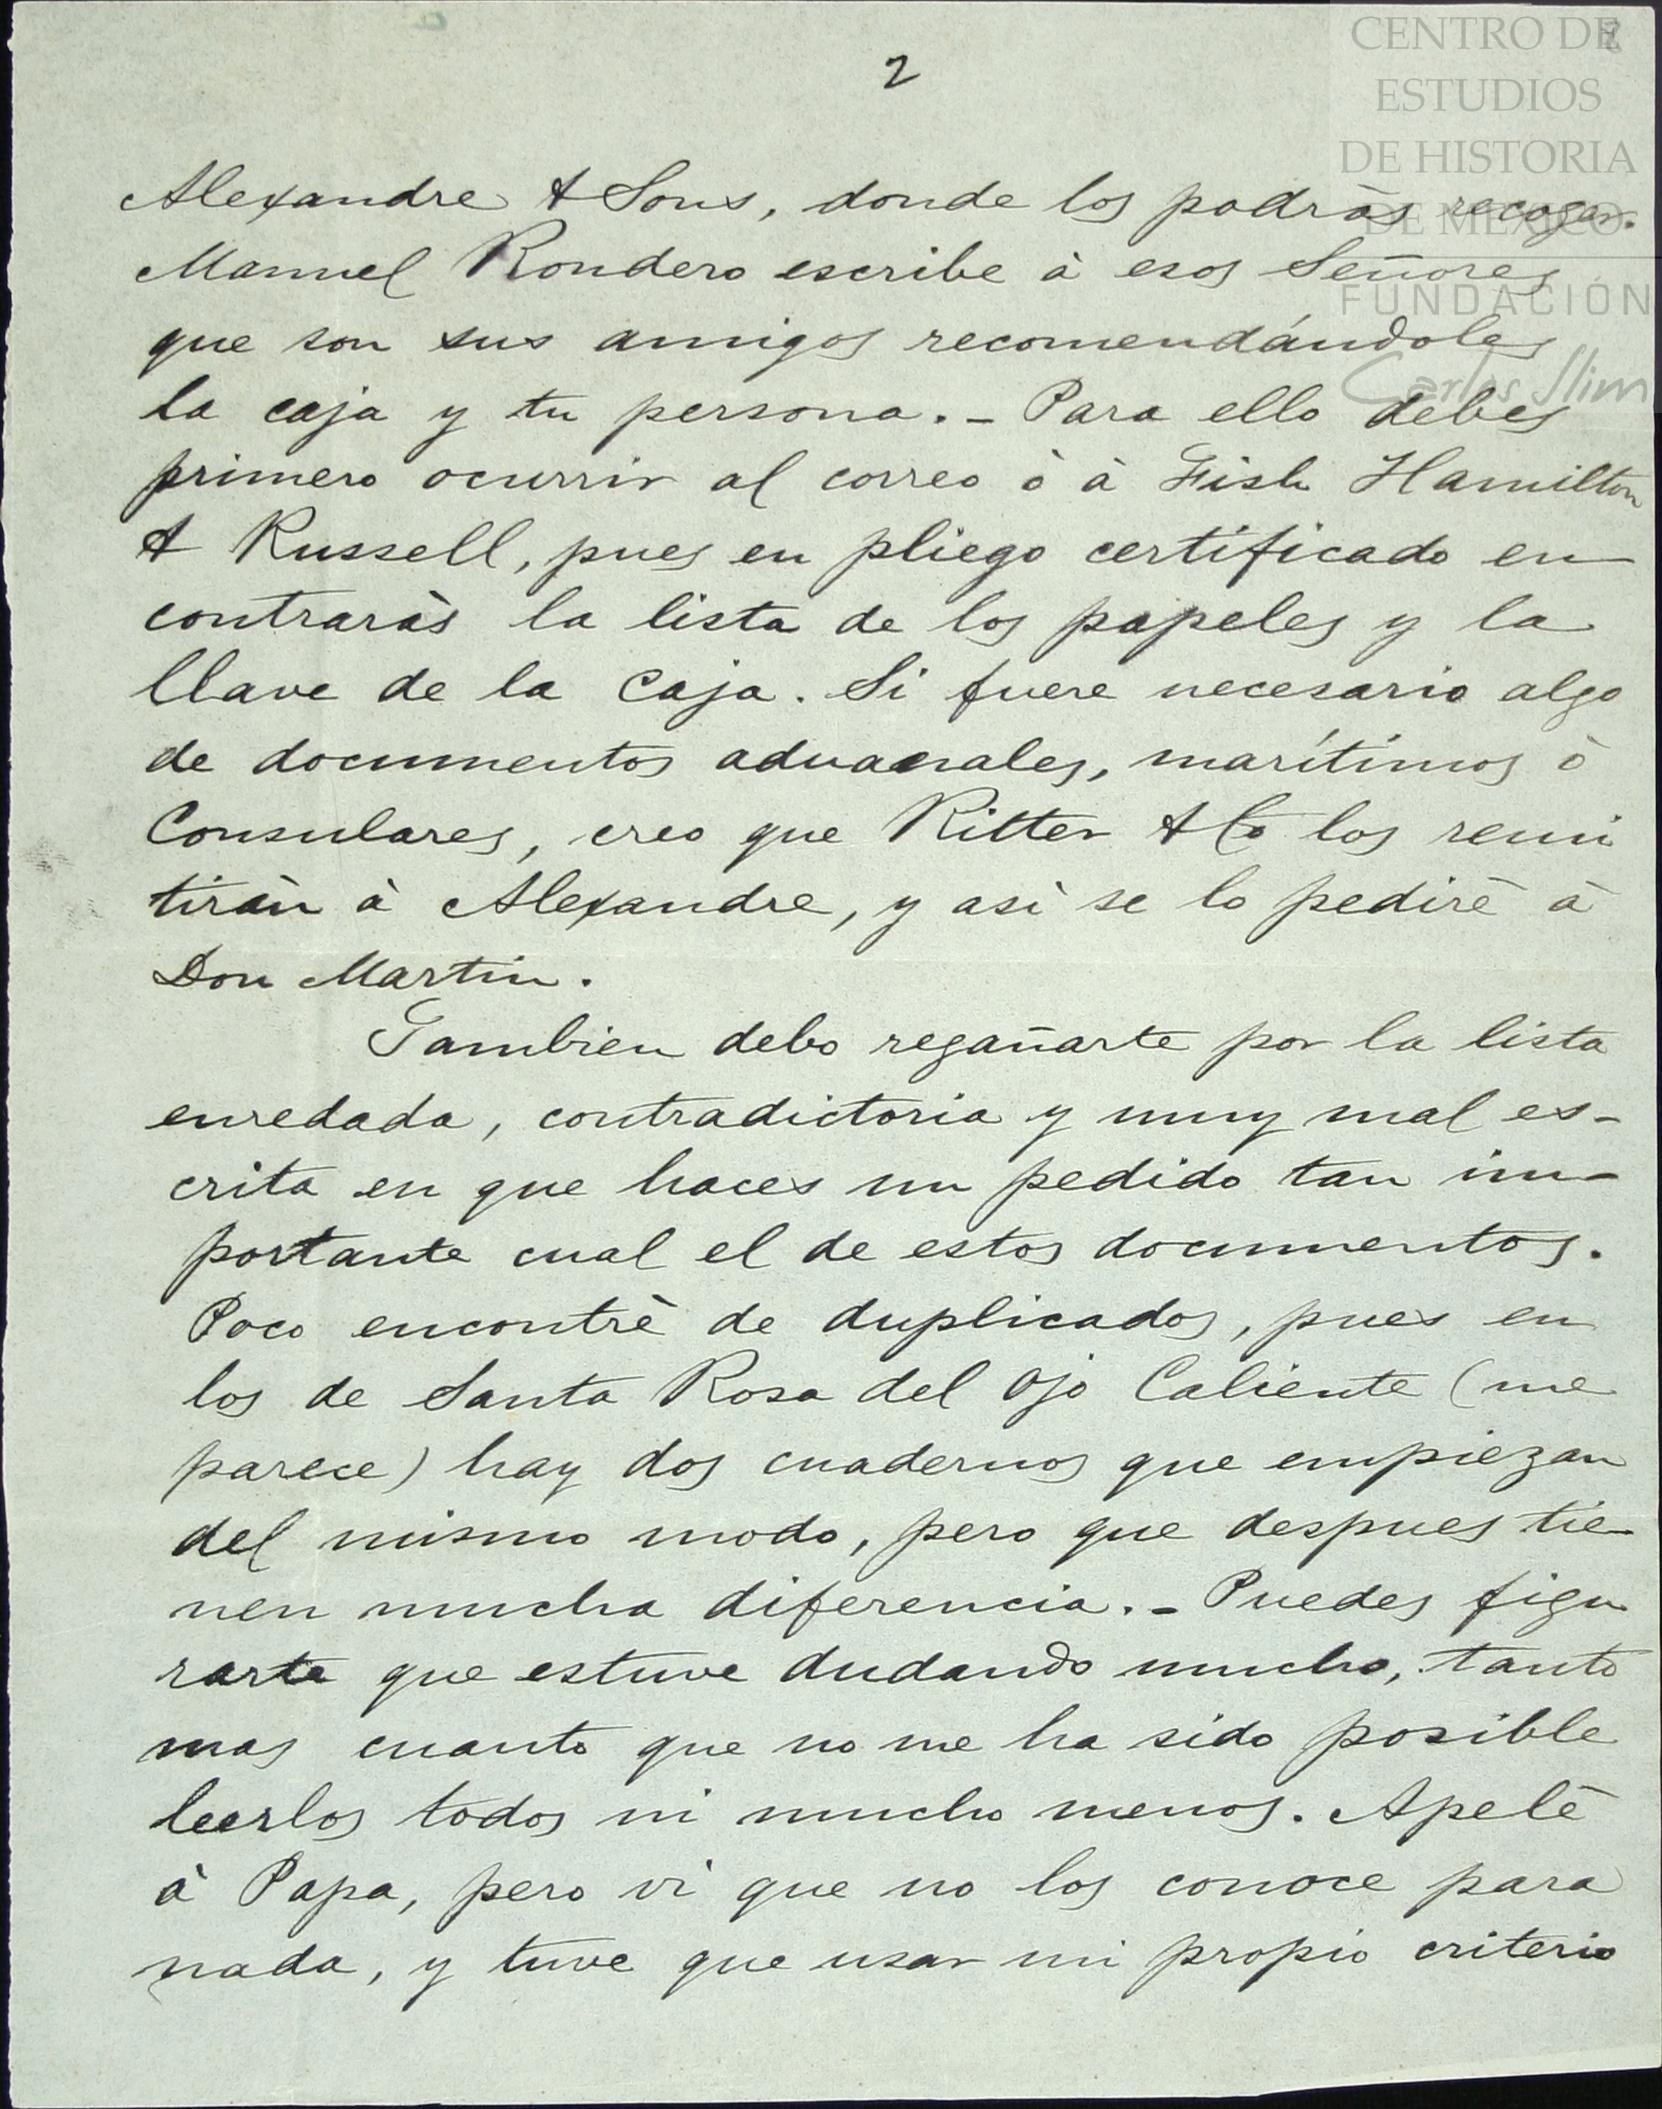 2
CENTRO DE
ESTUDIOS
DE HISTORIA
DE MEXICO
FUNDACIÓN
Carlos Slim
Alexandre & Sons, donde los podràs recoger.
Manuel Rondero escribe à esos Señores
que son sus amigos recomendándoles
la caja y tu persona. - Para ello debes
primero ocurrir al correo ò à Fish Hamilton
& Russell, pues en pliego certificado en
contraràs la lista de los papeles y la
llave de la caja. Si fuere necesario algo
de documentos aduanales, marítimos ò
Consulares, creo que Ritter & Co los remi
tiràn à Alexandre, y asì se lo pedirè à
Don Martin.
Tambien debo regañarte por la lista
enredada, contradictoria y muy mal es-
crita en que haces un pedido tan im-
portante cual el de estos documentos.
Poco encontrè de duplicados, pues en
los de Santa Rosa del Ojo Caliente (me
parece) hay dos cuadernos que empiezan
del mismo modo, pero que despues tie-
nen mucha diferencia. - Puedes figu
rarte que estuve dudando mucho, tanto
mas cuanto que no me ha sido posible
leerlos todos ni mucho menos. Apelè
à Papa, pero vì que no los conoce para
nada, y tuve que usar mi propio criterio